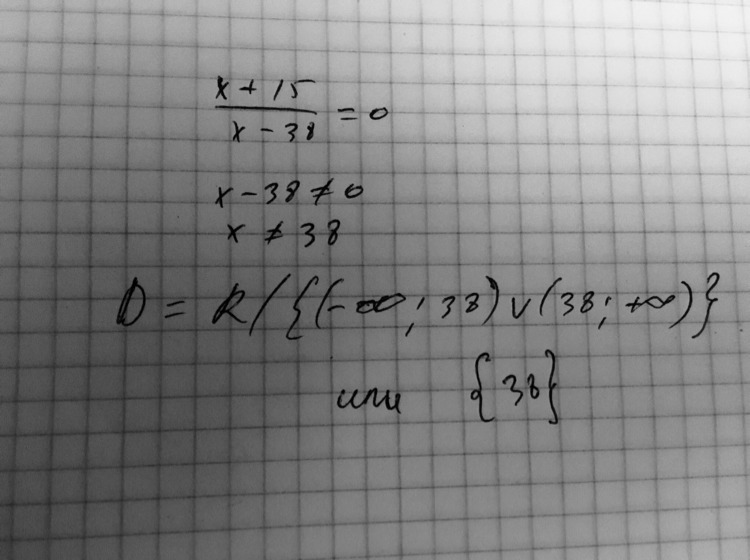 x + 15
x - 38 = 0
x - 38 ≠ 0
x ≠ 38
D = R / {(-∞; 38) ∨ (38; +∞)}
или {38}